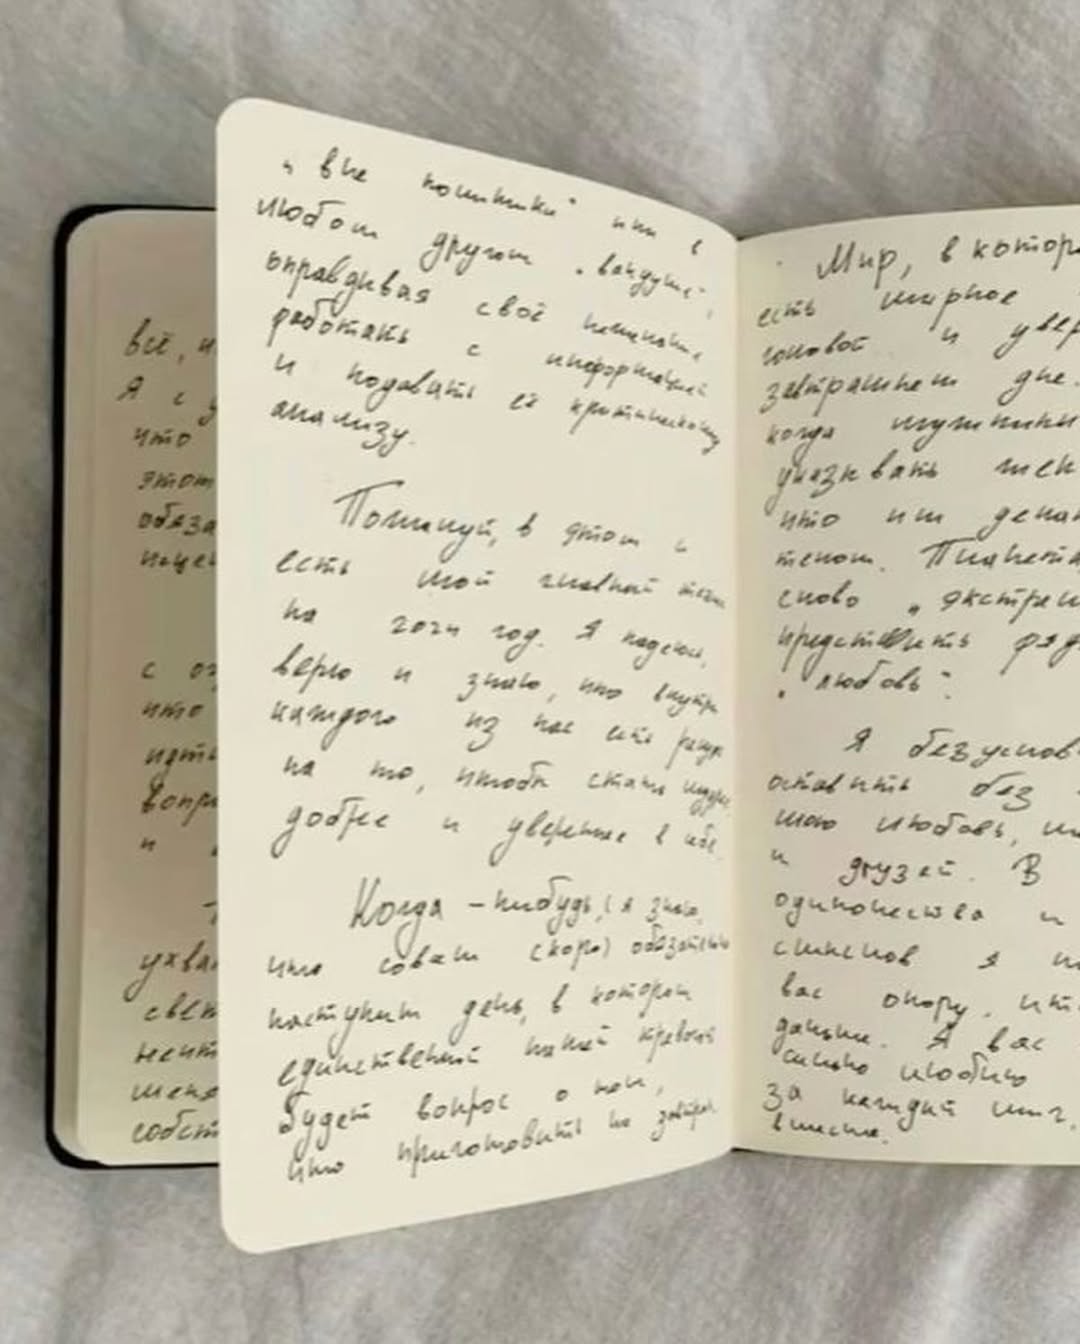 всё, и
Я с у
что
этот
обяза
с ог
что
идти
вопро
и
ухва
свет
меня
собст
„вне политики“ или в
любом другом „вакууме“,
оправдывая своё нежелание
работать с информацией
и подавать её критическому
анализу.
Пожалуй, в этом и
есть мой главный
на 2024 год. Я надеюсь,
верю и знаю, что внутри
каждого из нас есть ресурс
на то, чтобы стать мудрее,
добрее и увереннее в себе.
Когда-нибудь, (я знаю,
что совсем скоро) обязательно
наступит день, в котором
единственной нашей тревогой
будет вопрос о том,
что приготовить на завтрак
Мир, в котор
есть мирное
головой и увер
завтрашнем дне.
когда мужчины
указывать жен
что им делат
телом. Планета,
слово „экстрем
представить ряд
„любовь“.
Я безуслов
оставить без
мою любовь,
и друзей. В
одиночества и
смыслов я
вас опору,
дальше. Я вас
сильно люблю
за каждый миг,
вместе.